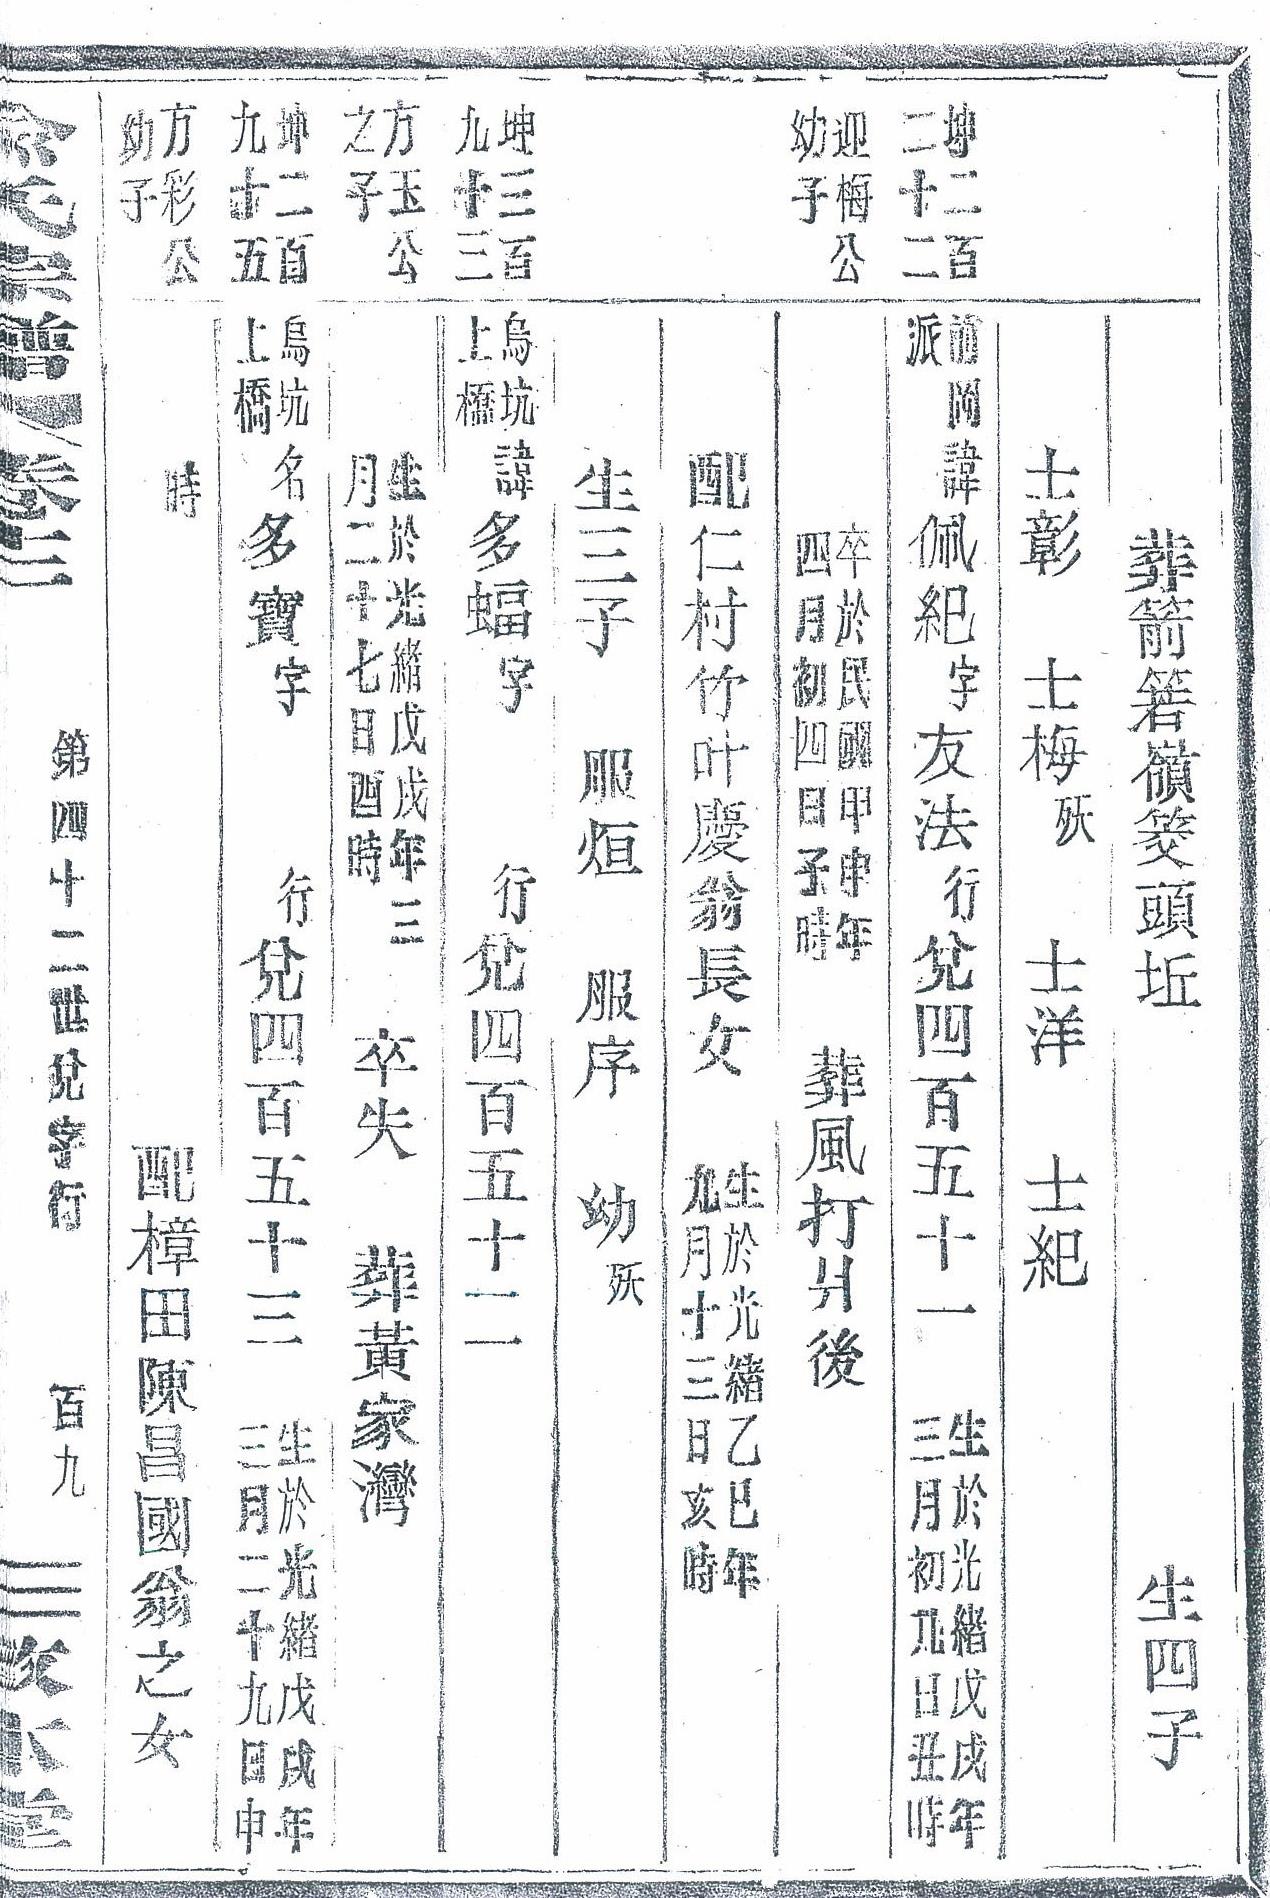 葬箭箬嶺筊頭坵　生四子
士彰　士梅殀　士洋　士紀
坤二百
二十二
岡
派
諱佩紀字友法行兌四百五十一
生於光緒戊戌年
三月初九日丑時
迎梅公
幼子
卒於民國甲申年
四月初四日子時
葬風打爿後
配仁村竹叶慶翁長女
生於光緒乙巳年
九月十三日亥時
生三子　服烜　服序　幼殀
坤三百
九十三
烏坑
上橋
諱多蝠字　行兌四百五十二
方玉公
之子
生於光緒戊戌年三
月二十七日酉時
卒失　葬黃家灣
坤二百
九十五
烏坑
上橋
名多寶字　行兌四百五十三
生於光緒戊戌年
三月二十九日申
方彩公
幼子
時
配樟田陳昌國翁之女
氏宗譜　卷二　第四十二世兌字行　百九